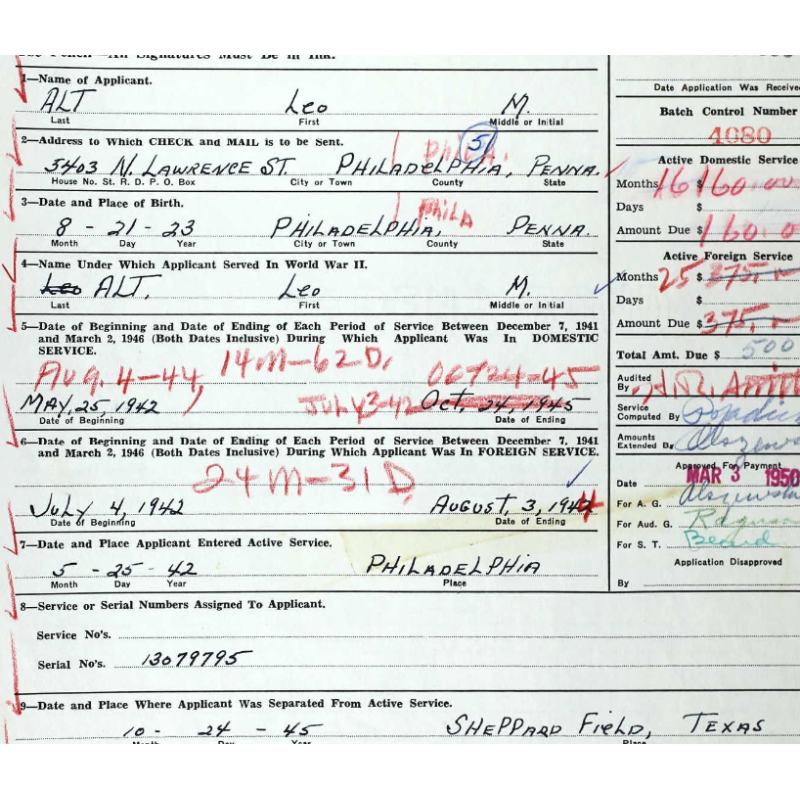 1—Name of Applicant.
ALT Leo M.
Last First Middle or Initial
2—Address to Which CHECK and MAIL is to be Sent.
5
Phila.
5403 N. LAWRENCE ST. PHILADELPHIA, PENNA.
House No. St. R. D. P. O. Box City or Town County State
3—Date and Place of Birth.
Phila
8 - 21 - 23 PHILADELPHIA, PENNA.
Month Day Year City or Town County State
4—Name Under Which Applicant Served In World War II.
Leo ALT, Leo M.
Last First Middle or Initial
5—Date of Beginning and Date of Ending of Each Period of Service Between December 7, 1941
and March 2, 1946 (Both Dates Inclusive) During Which Applicant Was In DOMESTIC
SERVICE.
14M-62D.
Aug. 4-44, Oct 24-45
MAY, 25, 1942 July 3-42 Oct, 24, 1945
Date of Beginning Date of Ending
6—Date of Beginning and Date of Ending of Each Period of Service Between December 7, 1941
and March 2, 1946 (Both Dates Inclusive) During Which Applicant Was In FOREIGN SERVICE.
24M-31D
July 4, 1942 AUGUST, 3, 1944
Date of Beginning Date of Ending
7—Date and Place Applicant Entered Active Service.
5 - 25 - 42 PHILADELPHIA
Month Day Year Place
8—Service or Serial Numbers Assigned To Applicant.
Service No's.
Serial No's. 13079795
9—Date and Place Where Applicant Was Separated From Active Service.
10 - 24 - 45 SHEPPARD Field, TEXAS
Month Day Year Place
Date Application Was Received
Batch Control Number
4080
Active Domestic Service
Months 16 $ 160.00
Days $
Amount Due $ 160.0
Active Foreign Service
Months 25 $ 375.
Days $
Amount Due $ 375.
Total Amt. Due $ 500
Audited
By
Service
Computed By
Amounts
Extended By
Approved For Payment
Date MAR 3 1950
For A. G.
For Aud. G.
For S. T. Beard
Application Disapproved
By